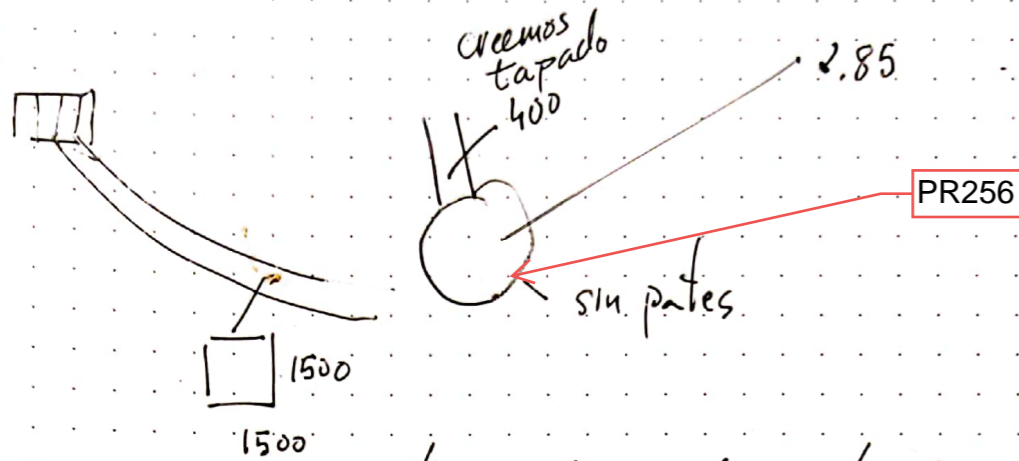 creemos
tapado
400
2.85
PR256
sin pates
1500
1500